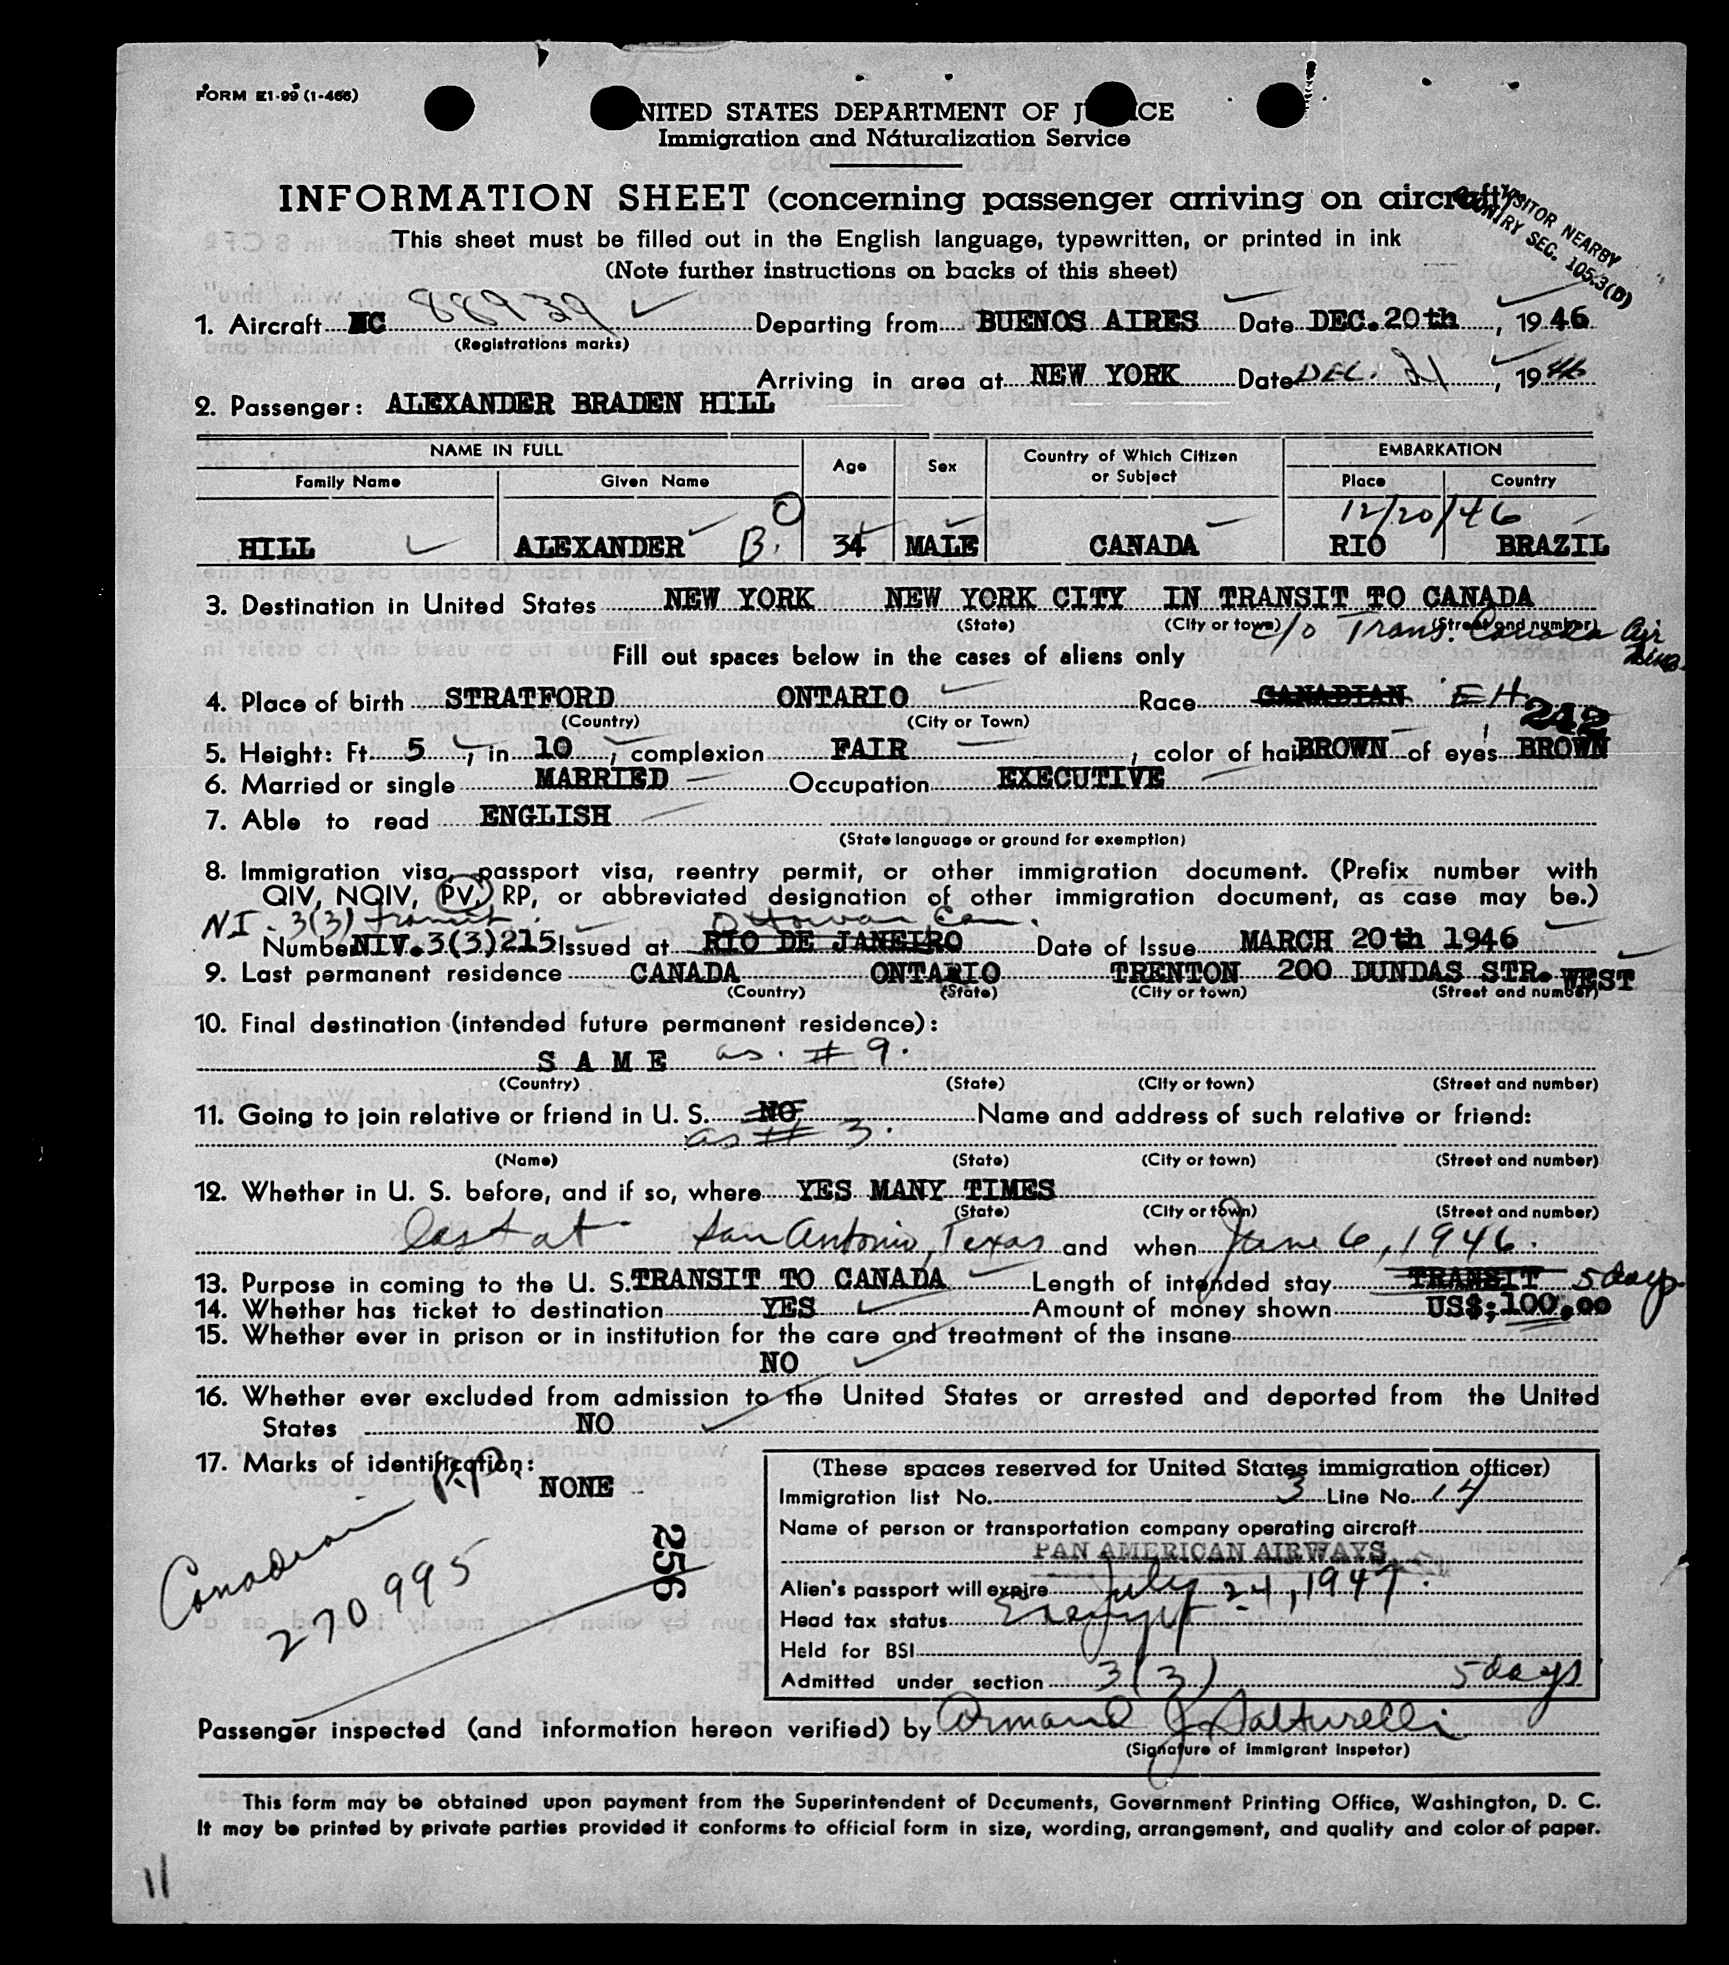 FORM I-99 (1-466)
UNITED STATES DEPARTMENT OF JUSTICE
Immigration and Naturalization Service
INFORMATION SHEET (concerning passenger arriving on aircraft)
VISITOR NEARBY
COUNTRY SEC. 105.3(D)
This sheet must be filled out in the English language, typewritten, or printed in ink
(Note further instructions on backs of this sheet)
1. Aircraft NC 88939 Departing from BUENOS AIRES Date DEC. 20th, 1946
(Registrations marks)
Arriving in area at NEW YORK Date DEC. 21, 1946
2. Passenger: ALEXANDER BRADEN HILL
NAME IN FULL Age Sex Country of Which Citizen or Subject EMBARKATION
Family Name Given Name Place Country
12/20/46
HILL ALEXANDER B. 34 MALE CANADA RIO BRAZIL
3. Destination in United States NEW YORK NEW YORK CITY IN TRANSIT TO CANADA
(State) (City or town) (Street and number)
c/o Trans. Canada Air Lines
Fill out spaces below in the cases of aliens only
4. Place of birth STRATFORD ONTARIO Race CANADIAN
(Country) (City or Town)
242
5. Height: Ft. 5, in. 10, complexion FAIR, color of hair BROWN of eyes BROWN
6. Married or single MARRIED Occupation EXECUTIVE
7. Able to read ENGLISH
(State language or ground for exemption)
8. Immigration visa, passport visa, reentry permit, or other immigration document. (Prefix number with
QIV, NQIV, PV, RP, or abbreviated designation of other immigration document, as case may be.)
NI. 3(3) transit Ottowan Can.
Number NIV. 3(3)215 Issued at RIO DE JANEIRO Date of Issue MARCH 20th 1946
9. Last permanent residence CANADA ONTARIO TRENTON 200 DUNDAS STR. WEST
(Country) (State) (City or town) (Street and number)
10. Final destination (intended future permanent residence):
S A M E as. # 9.
(Country) (State) (City or town) (Street and number)
11. Going to join relative or friend in U. S. NO Name and address of such relative or friend:
as # 3.
(Name) (State) (City or town) (Street and number)
12. Whether in U. S. before, and if so, where YES MANY TIMES
(State) (City or town) (Street and number)
last at San Antonio, Texas and when June 6, 1946.
13. Purpose in coming to the U. S. TRANSIT TO CANADA Length of intended stay TRANSIT 5 days
14. Whether has ticket to destination YES Amount of money shown US$;100.00
15. Whether ever in prison or in institution for the care and treatment of the insane
NO
16. Whether ever excluded from admission to the United States or arrested and deported from the United
States NO
17. Marks of identification: NONE
Canadian P.P.
270995
256
(These spaces reserved for United States immigration officer)
Immigration list No. 3 Line No. 14
Name of person or transportation company operating aircraft
PAN AMERICAN AIRWAYS
Alien's passport will expire July 24, 1947.
Head tax status Exempt
Held for BSI
Admitted under section 3(3) 5 days
Passenger inspected (and information hereon verified) by Armand J. Salturelli
(Signature of immigrant inspetor)
This form may be obtained upon payment from the Superintendent of Documents, Government Printing Office, Washington, D. C.
It may be printed by private parties provided it conforms to official form in size, wording, arrangement, and quality and color of paper.
11